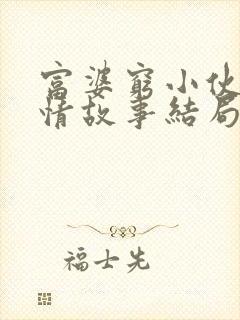 富婆窮小伙
情故事結局
福士先